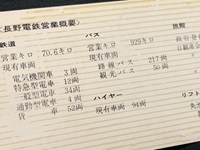 〈長野電鉄営業概要〉
鉄道
営業キロ 70.6キロ
現有車両
電気機関車 3両
特急型電車 12両
一般型電車 34両
通勤型電車
貨車 52両
バス
営業キロ 929キロ
現有車両
路線バス 217両
観光バス 55両
ハイヤー
現有車両 94両
旅館
リフト